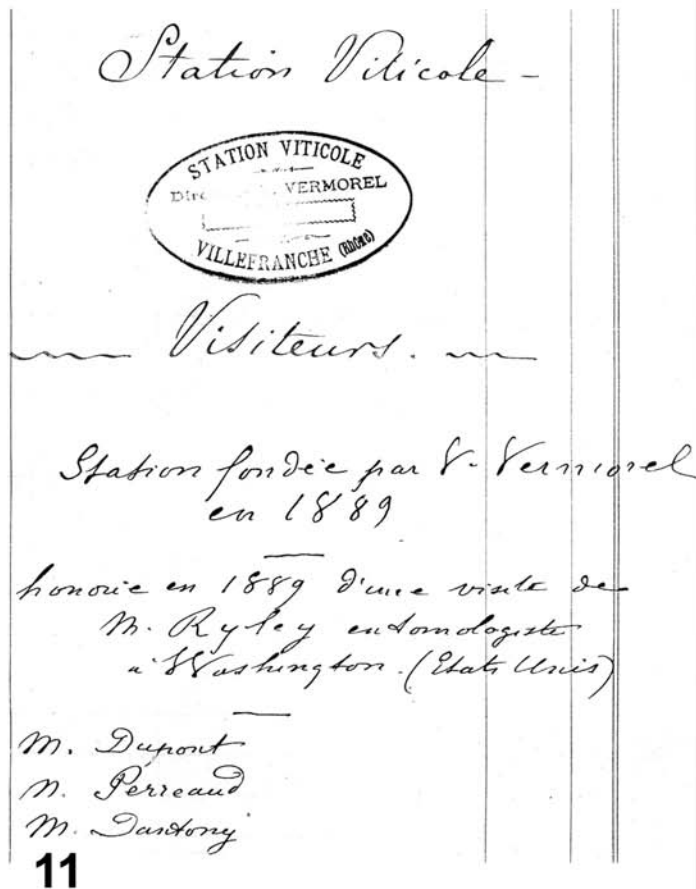 Station Viticole -
STATION VITICOLE
VERMOREL
VILLEFRANCHE (Rhône)
Visiteurs.
Station fondée par V. Vermorel
en 1889
honorée en 1889 d'une visite de
M. Ryley entomologiste
à Washington. (Etats Unis)
M. Dupont
M. Perreaud
M. Dantony
11